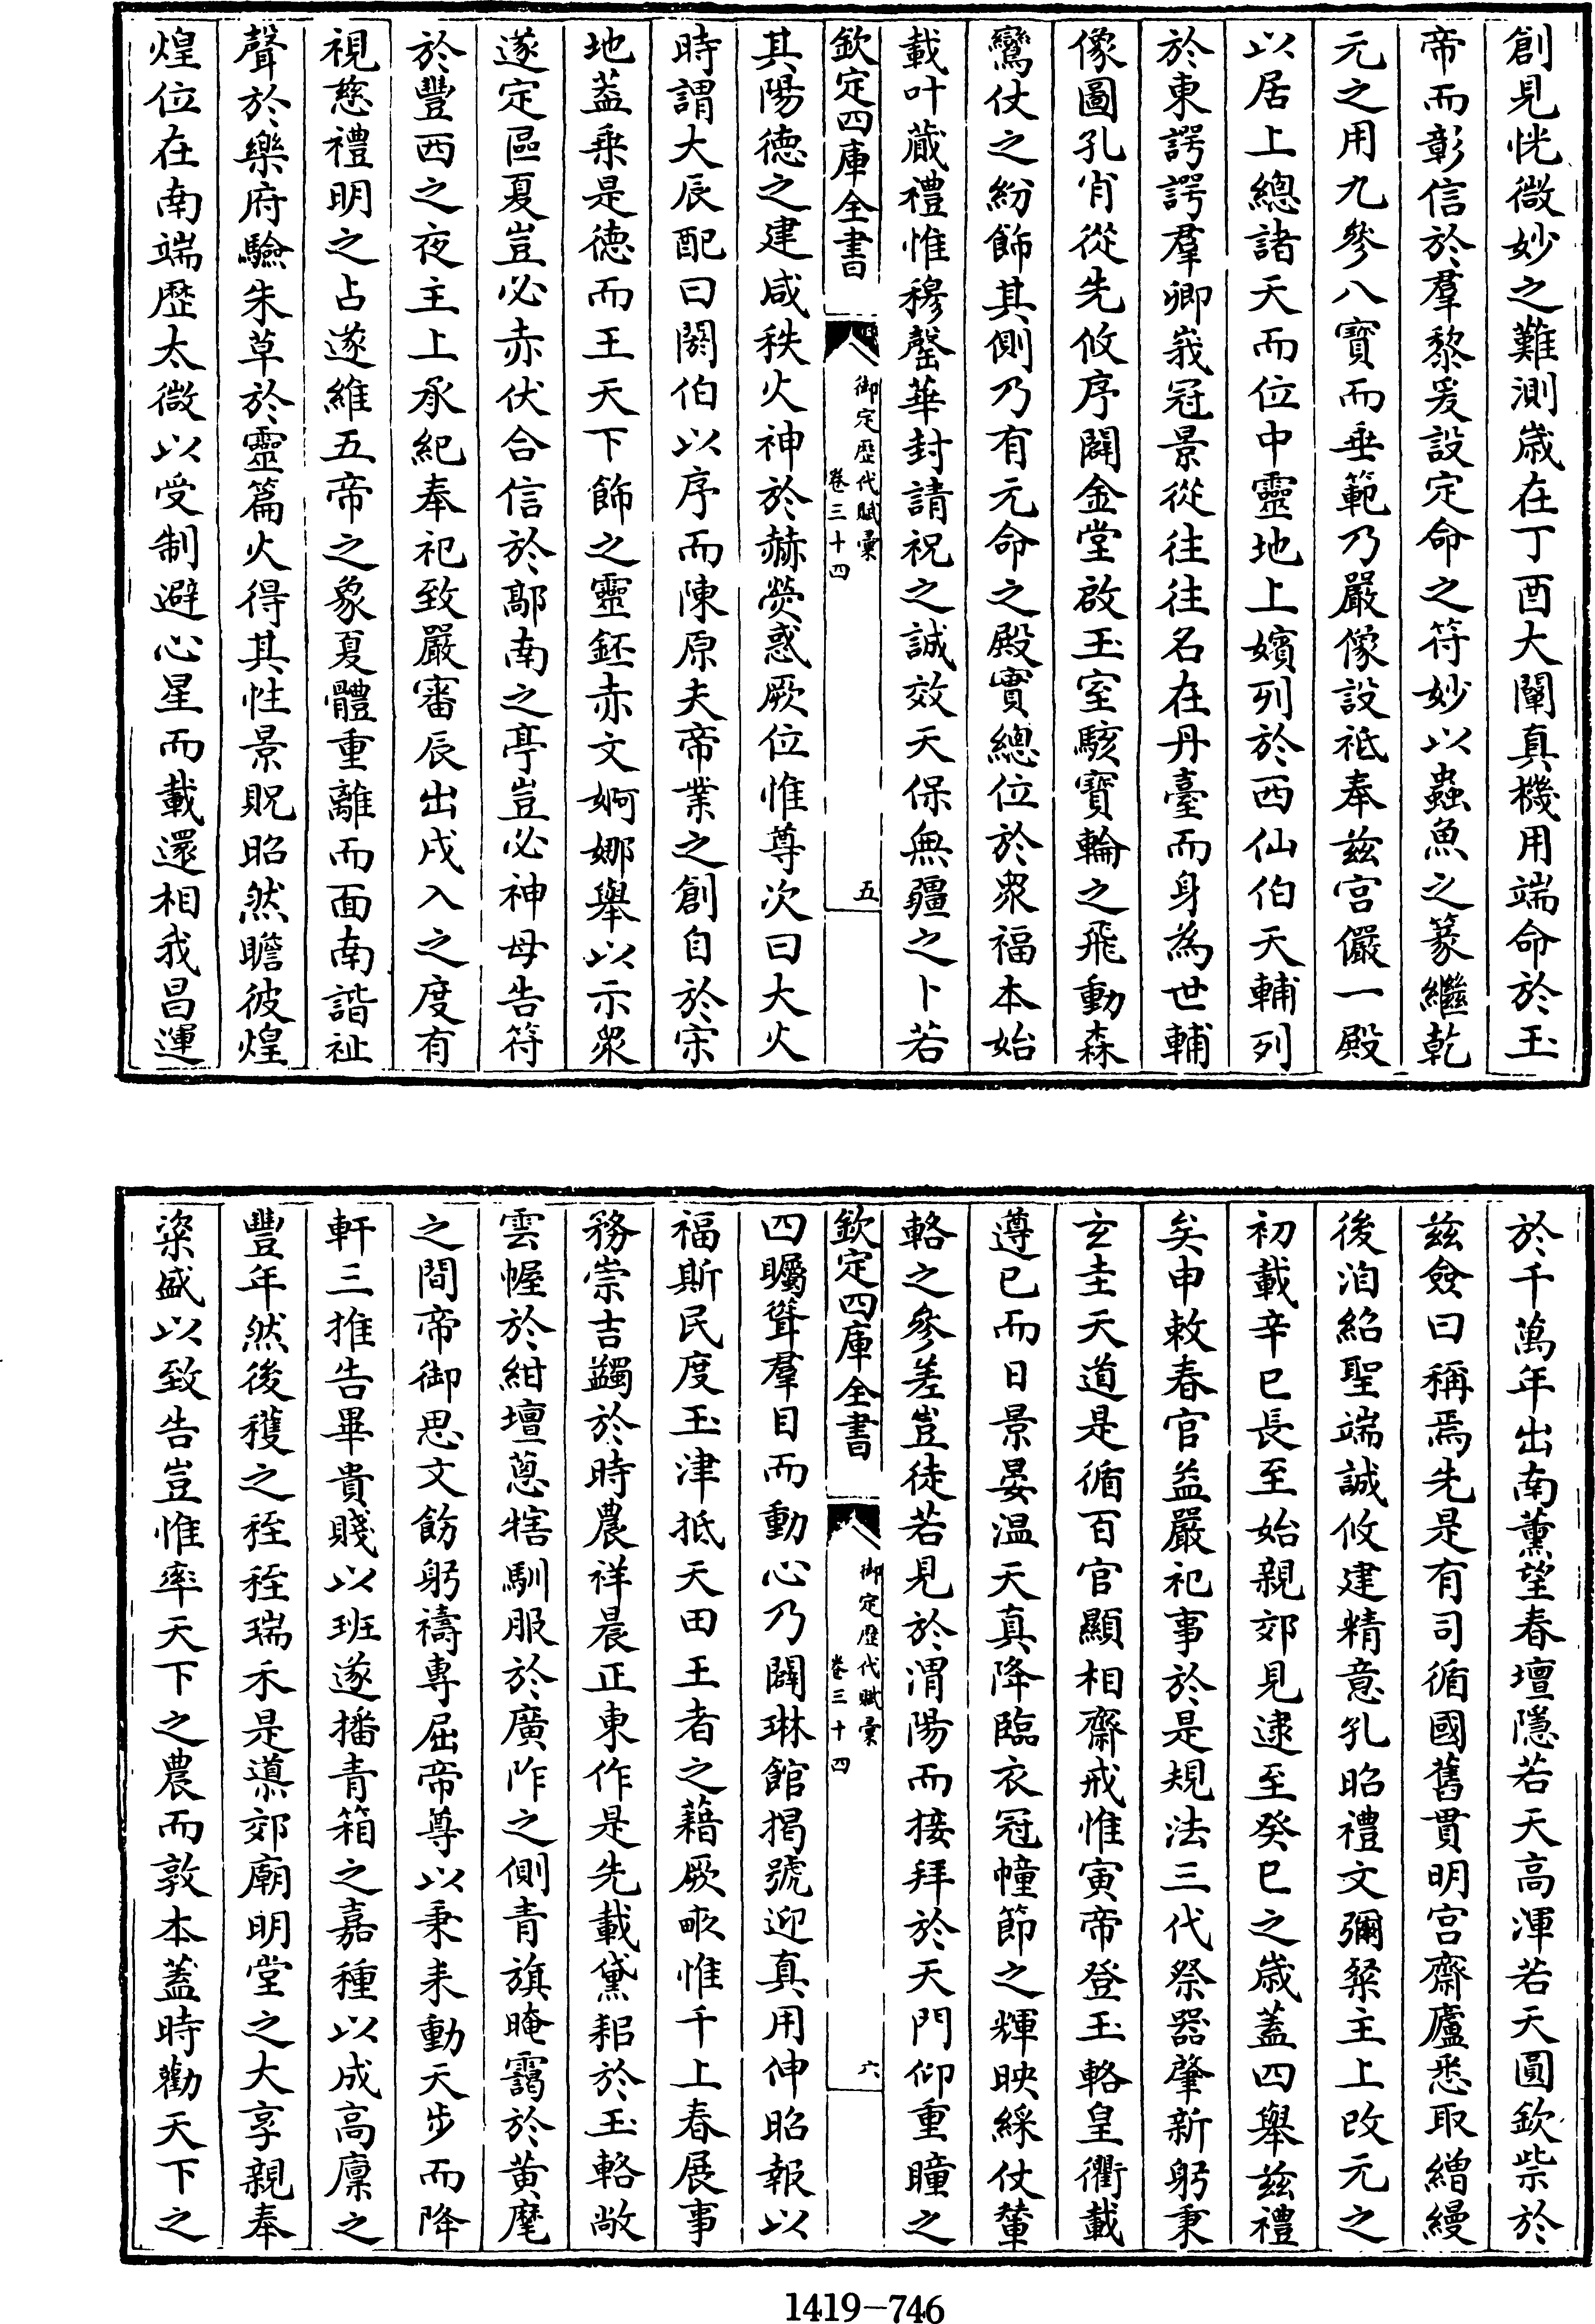 創見恍微妙之難測歲在丁酉大闡真機用端命於玉
帝而彰信於羣黎爰設定命之符妙以蟲魚之篆繼乾
元之用九參八寶而垂範乃嚴像設祗奉兹宫儼一殿
以居上總諸天而位中靈地上嬪列於西仙伯天輔列
於東諤諤羣卿峩冠景從往往名在丹臺而身為世輔
像圖孔肖從先攸序闢金堂啟玉室駭寶輪之飛動森
鸞仗之紛飾其側乃有元命之殿實總位於衆福本始
載叶蕆禮惟穆罄華封請祝之誠效天保無疆之卜若
欽定四庫全書
御定歷代賦彙
卷三十四
五
其陽德之建咸秩火神於赫熒惑厥位惟尊次曰大火
時謂大辰配曰閼伯以序而陳原夫帝業之創自於宋
地葢乗是德而王天下飾之靈鉟赤文婀娜舉以示衆
遂定區夏豈必赤伏合信於鄗南之亭豈必神母告符
於豐西之夜主上承紀奉祀致嚴審辰出戌入之度有
視慈禮明之占遂維五帝之象夏體重離而面南諧祉
聲於樂府驗朱草於靈篇火得其性景貺昭然瞻彼煌
煌位在南端歴太微以受制避心星而載還相我昌運
於千萬年出南薰望春壇隱若天高渾若天圓欽柴於
兹僉曰稱焉先是有司循國舊貫明宫齋廬悉取繒縵
後洎紹聖端誠攸建精意孔昭禮文彌粲主上改元之
初載辛巳長至始親郊見逮至癸巳之歲蓋四舉兹禮
矣申敕春官益嚴祀事於是規法三代祭器肇新躬秉
玄圭天道是循百官顯相齋戒惟寅帝登玉輅皇衢載
遵已而日景晏温天真降臨衣冠幢節之輝映綵仗輦
輅之參差豈徒若見於渭陽而接拜於天門仰重瞳之
欽定四庫全書
御定歷代賦彙
卷三十四
六
四矚聳羣目而動心乃闢琳館揭號迎真用伸昭報以
福斯民度玉津抵天田王者之藉厥畞惟千上春展事
務崇吉蠲於時農祥晨正東作是先載黛耜於玉輅敞
雲幄於紺壇蔥犗馴服於廣阼之側青旗晻靄於黄麾
之間帝御思文飭躬禱專屈帝尊以秉耒動天步而降
軒三推告畢貴賤以班遂播青箱之嘉種以成高廩之
豐年然後穫之秷秷瑞禾是𨗉郊廟明堂之大享親奉
粢盛以致告豈惟率天下之農而敦本蓋時勸天下之
1419-746